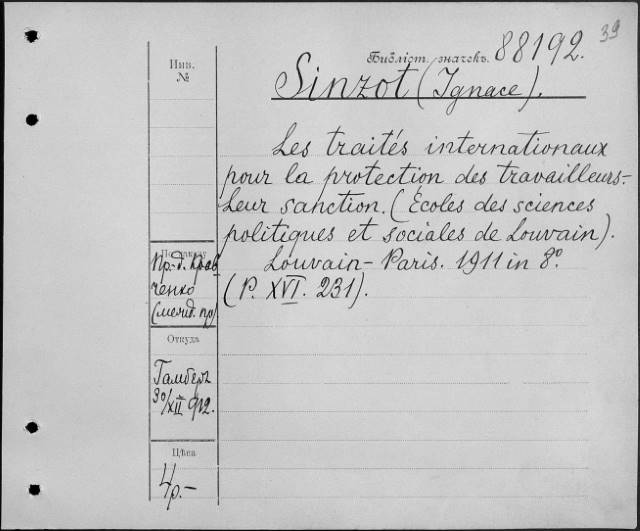 39
Библіот. значекъ. 88192.
Инв.
№
Sinzot (Ignace).
Les traités internationaux
pour la protection des travailleurs-
Leur sanction. (Écoles des sciences
politiques et sociales de Louvain).
Louvain-Paris. 1911 in 8º.
(P. XVI. 231).
Пр.-д. Крав
ченко
Откуда
Гамберъ
30/XII 912.
Цѣна
4р.-